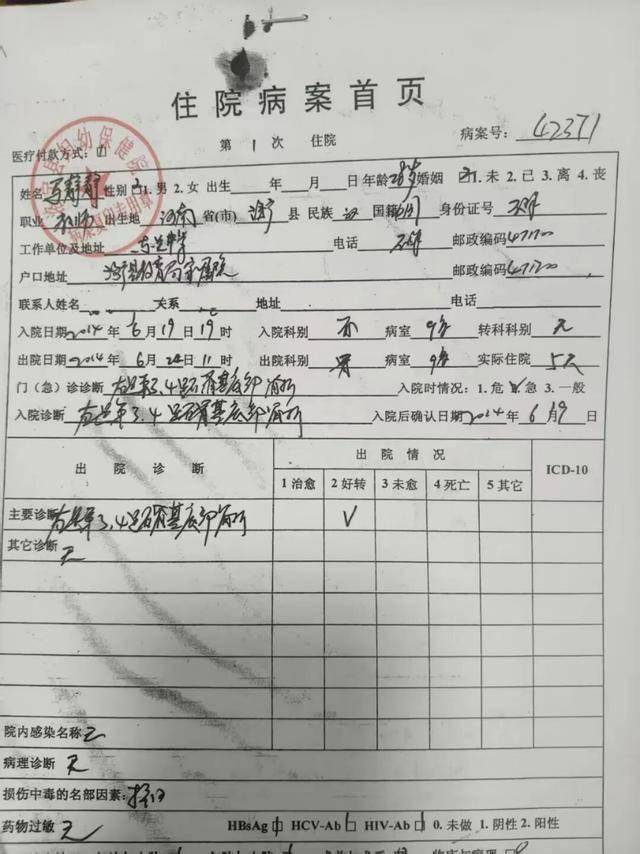 住院病案首页
医疗付款方式: 第 1 次 住院 病案号: 42371
姓名 静静 性别 1.男 2.女 出生 年 月 日 年龄 28岁 婚姻 1.未 2.已 3.离 4.丧
职业 教师 出生地 河南 省(市) 县 民族 汉 国籍 身份证号 不详
工作单位及地址 中学 电话 不详 邮政编码 471700
户口地址 教育局家属院 邮政编码 471700
联系人姓名 关系 地址 电话
入院日期 2014 年 6 月 19 日 19 时 入院科别 病室 转科科别 无
出院日期 2014 年 6 月 24 日 11 时 出院科别 骨 病室 实际住院 5 天
门(急)诊诊断 右足第3.4跖骨基底部骨折 入院时情况: 1.危 急 3.一般
入院诊断 右足第3.4跖骨基底部骨折 入院后确认日期 2014 年 6 月 19 日
出院诊断 出院情况 ICD-10
1 治愈 2 好转 3 未愈 4 死亡 5 其它
主要诊断 右足第3.4跖骨基底部骨折 √
其它诊断 无
院内感染名称 无
病理诊断 无
损伤中毒的名部因素:
药物过敏 无 HBsAg HCV-Ab HIV-Ab 0.未做 1.阴性 2.阳性